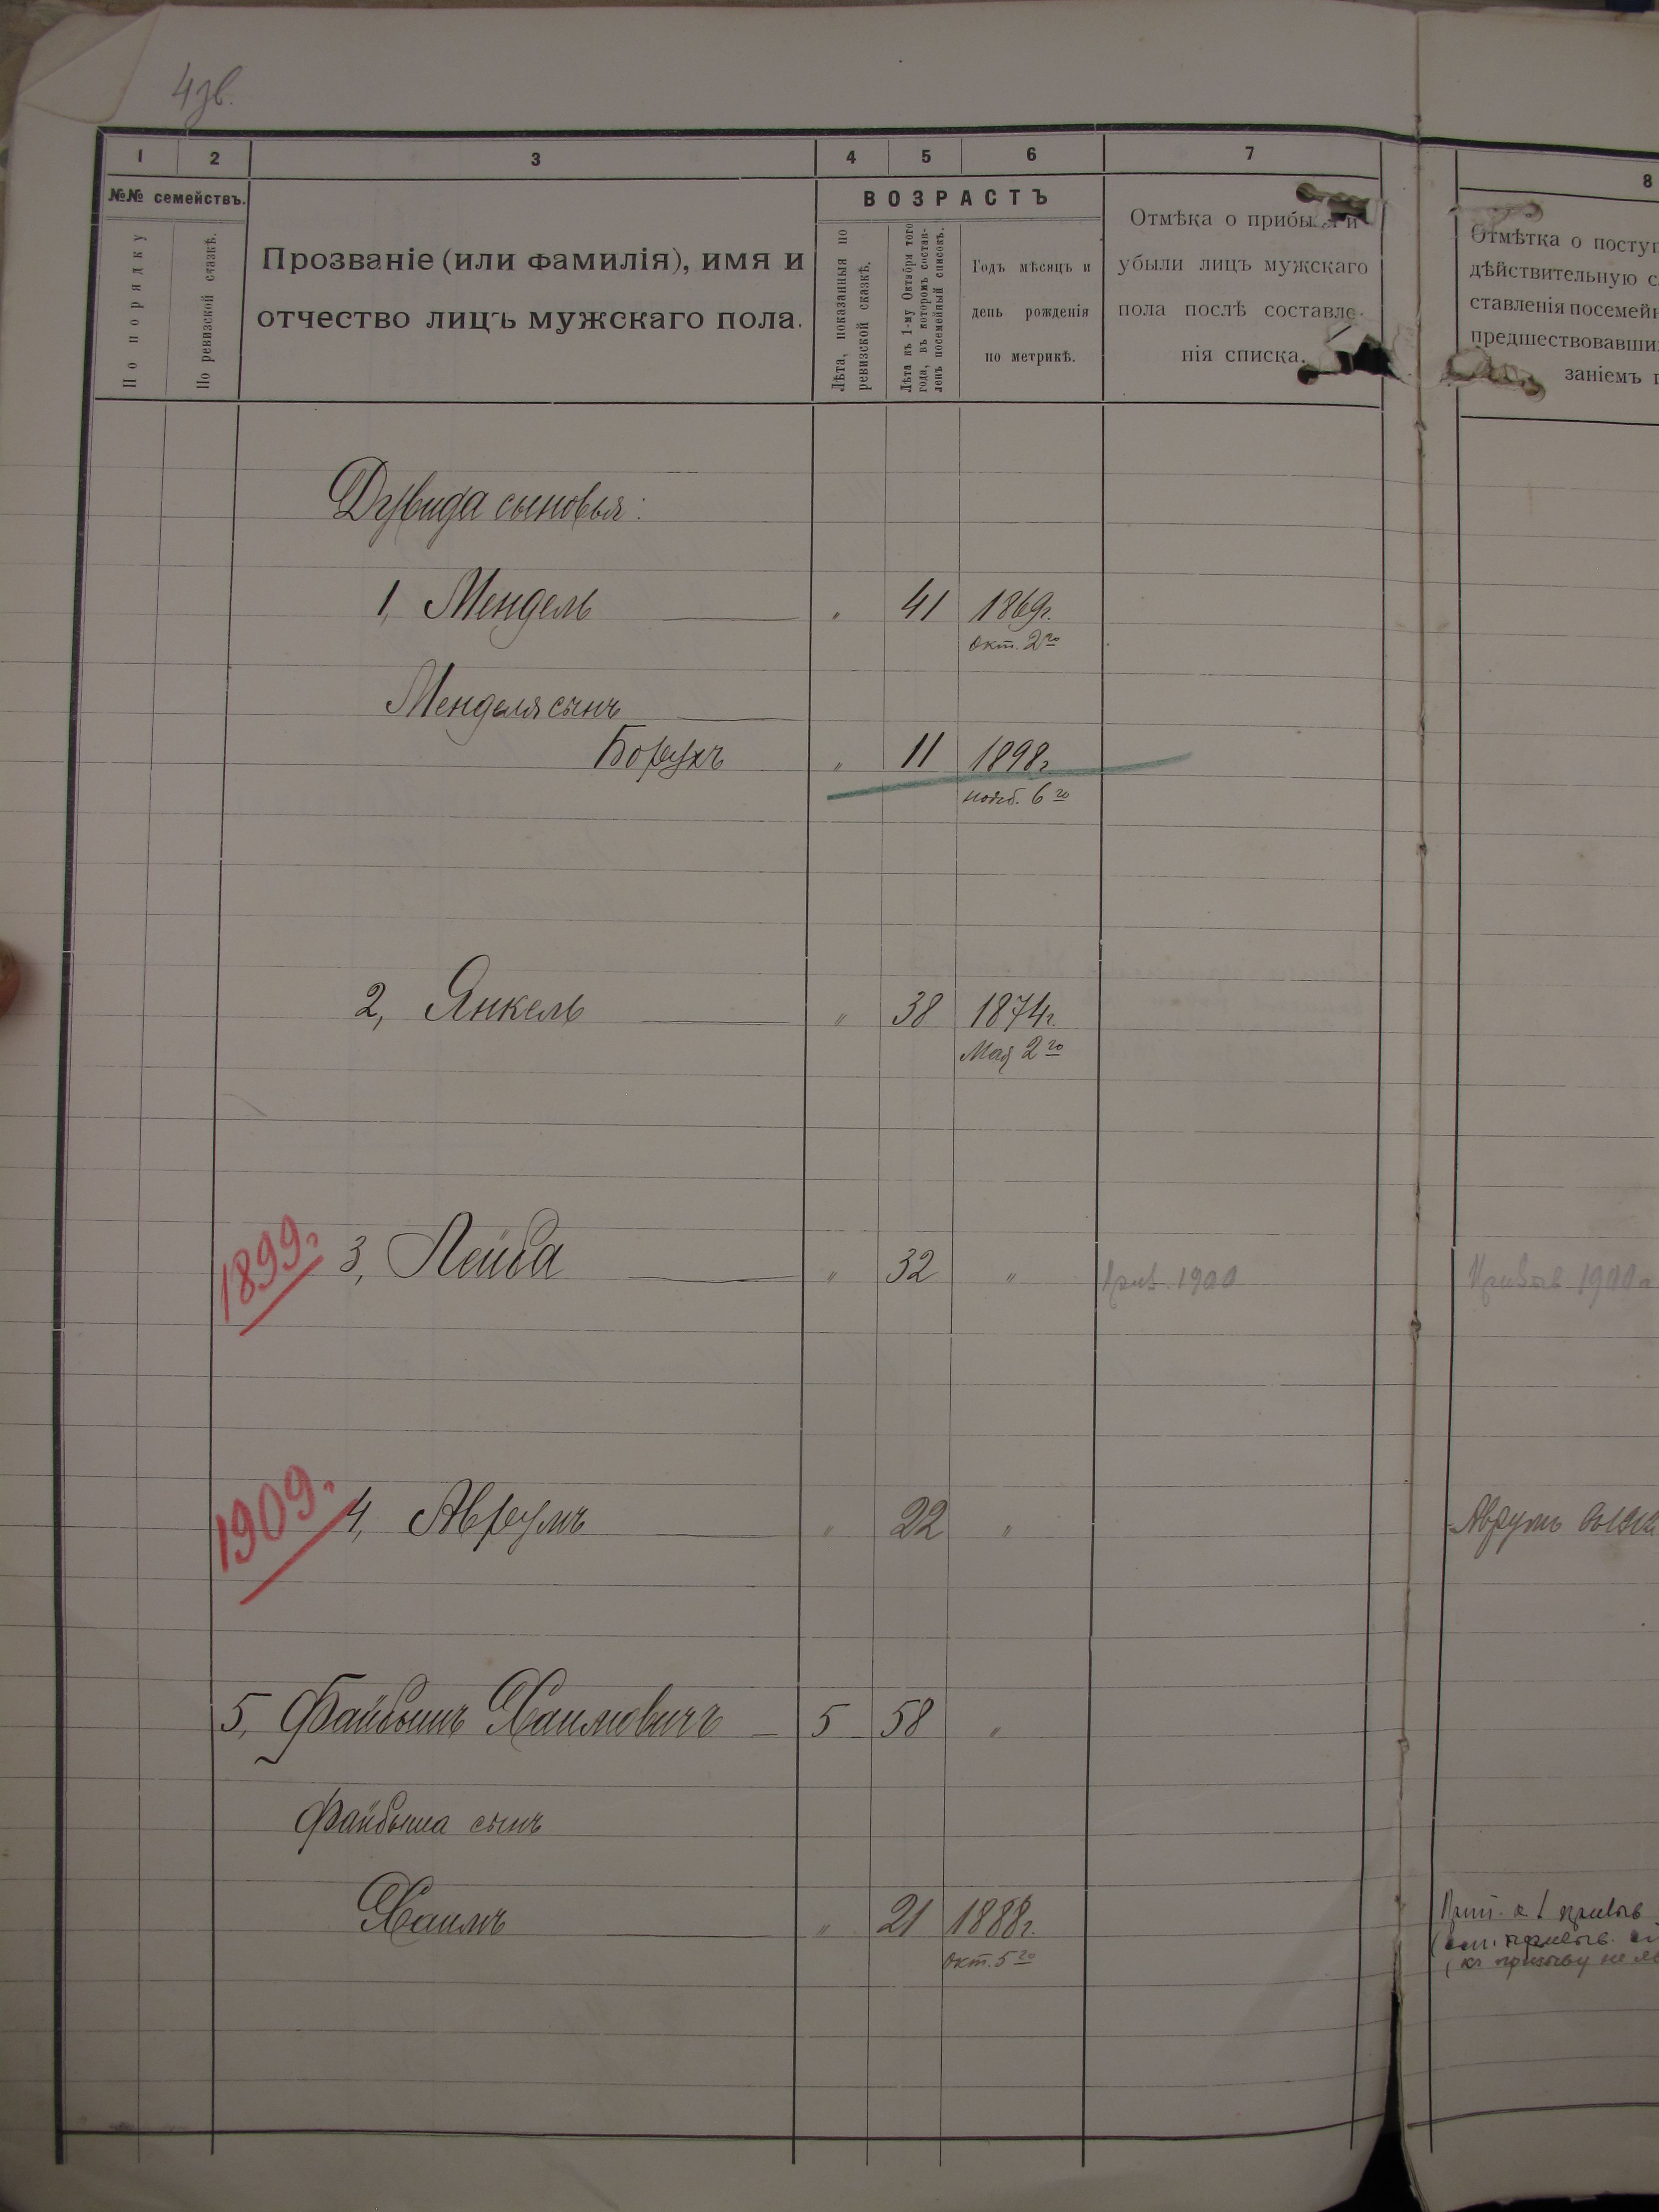 4зв.
1 2 3 4 5 6 7 8
№№ семействъ.
По порядку
По ревизской сказкѣ.
Прозваніе (или фамилія), имя и
отчество лицъ мужскаго пола.
ВОЗРАСТЪ
Лѣта, показанныя по
ревизской сказкѣ.
Лѣта къ 1-му Октября того
года, въ которомъ состав-
ленъ посемейный списокъ.
Годъ мѣсяцъ и
день рожденія
по метрикѣ.
Отмѣка о прибы и
убыли лицъ мужскаго
пола послѣ составле-
нія списка.
Отмѣтка о поступ
дѣйствительную с
ставленія посемейн
предшествовавши
заніемъ
Дувида сыновья:
1, Мендель " 41 1869г.
окт. 2го
Менделя сынъ
Борухъ " 11 1898г.
нояб. 6го
2, Янкель " 38 1874г.
Мая 2го
1899г. 3, Лейба " 32 " 1900 1900г
1909г. 4, Аврумъ " 22 " Аврумъ
5, Файбишъ Хаимовичъ 5 58 "
Файбиша сынъ
Хаимъ " 21 1888г.
окт. 5го
призыв
къ призыву не